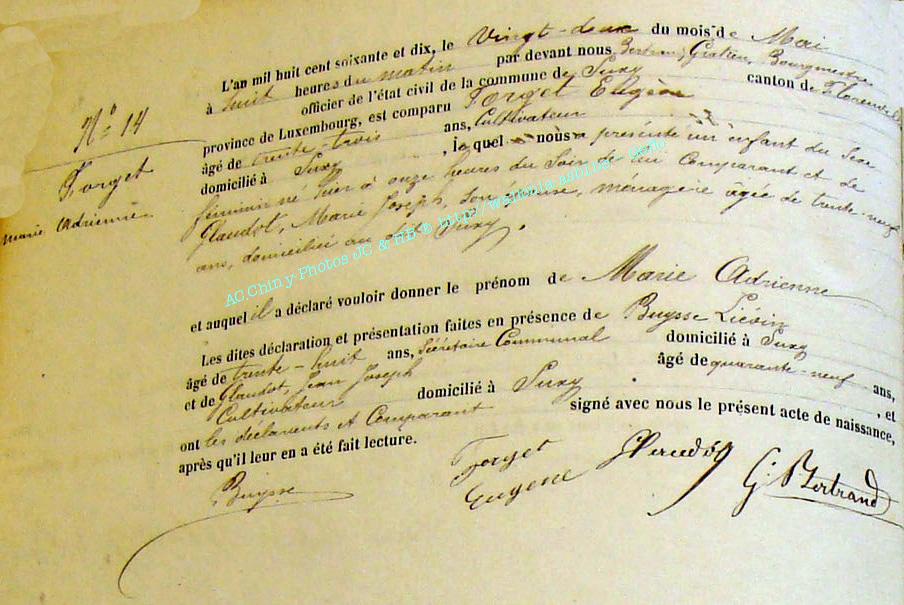 N° 14
Forget
Marie Adrienne
L'an mil huit cent soixante et dix, le Vingt-deux du mois de Mai
à huit heures du matin par devant nous Bertrand, Gratien, Bourgmestre
officier de l'état civil de la commune de Suxy canton de Florenville
province de Luxembourg, est comparu Forget Eugène
âgé de trente-trois ans, Cultivateur
domicilié à Suxy, lequel nous a présenté un enfant du Sexe
féminin né hier à onze heures du Soir de lui Comparant et de
Glaudot, Marie Joseph, Son épouse, ménagère âgée de trente-neuf
ans, domicilié au dit Suxy.
et auquel il a déclaré vouloir donner le prénom de Marie Adrienne
Les dites déclaration et présentation faites en présence de Buysse Liévin
âgé de trente-huit ans, Sécrétaire Communal domicilié à Suxy
et de Glaudot, Jean Joseph âgé de quarante-neuf ans,
Cultivateur domicilié à Suxy, et
ont les déclarants et Comparant signé avec nous le présent acte de naissance,
après qu'il leur en a été fait lecture.
Buysse
Forget
Eugene
Glaudot
G. Bertrand
AC Chiny Photos JC & HB ® http://wallonia.asbl.be